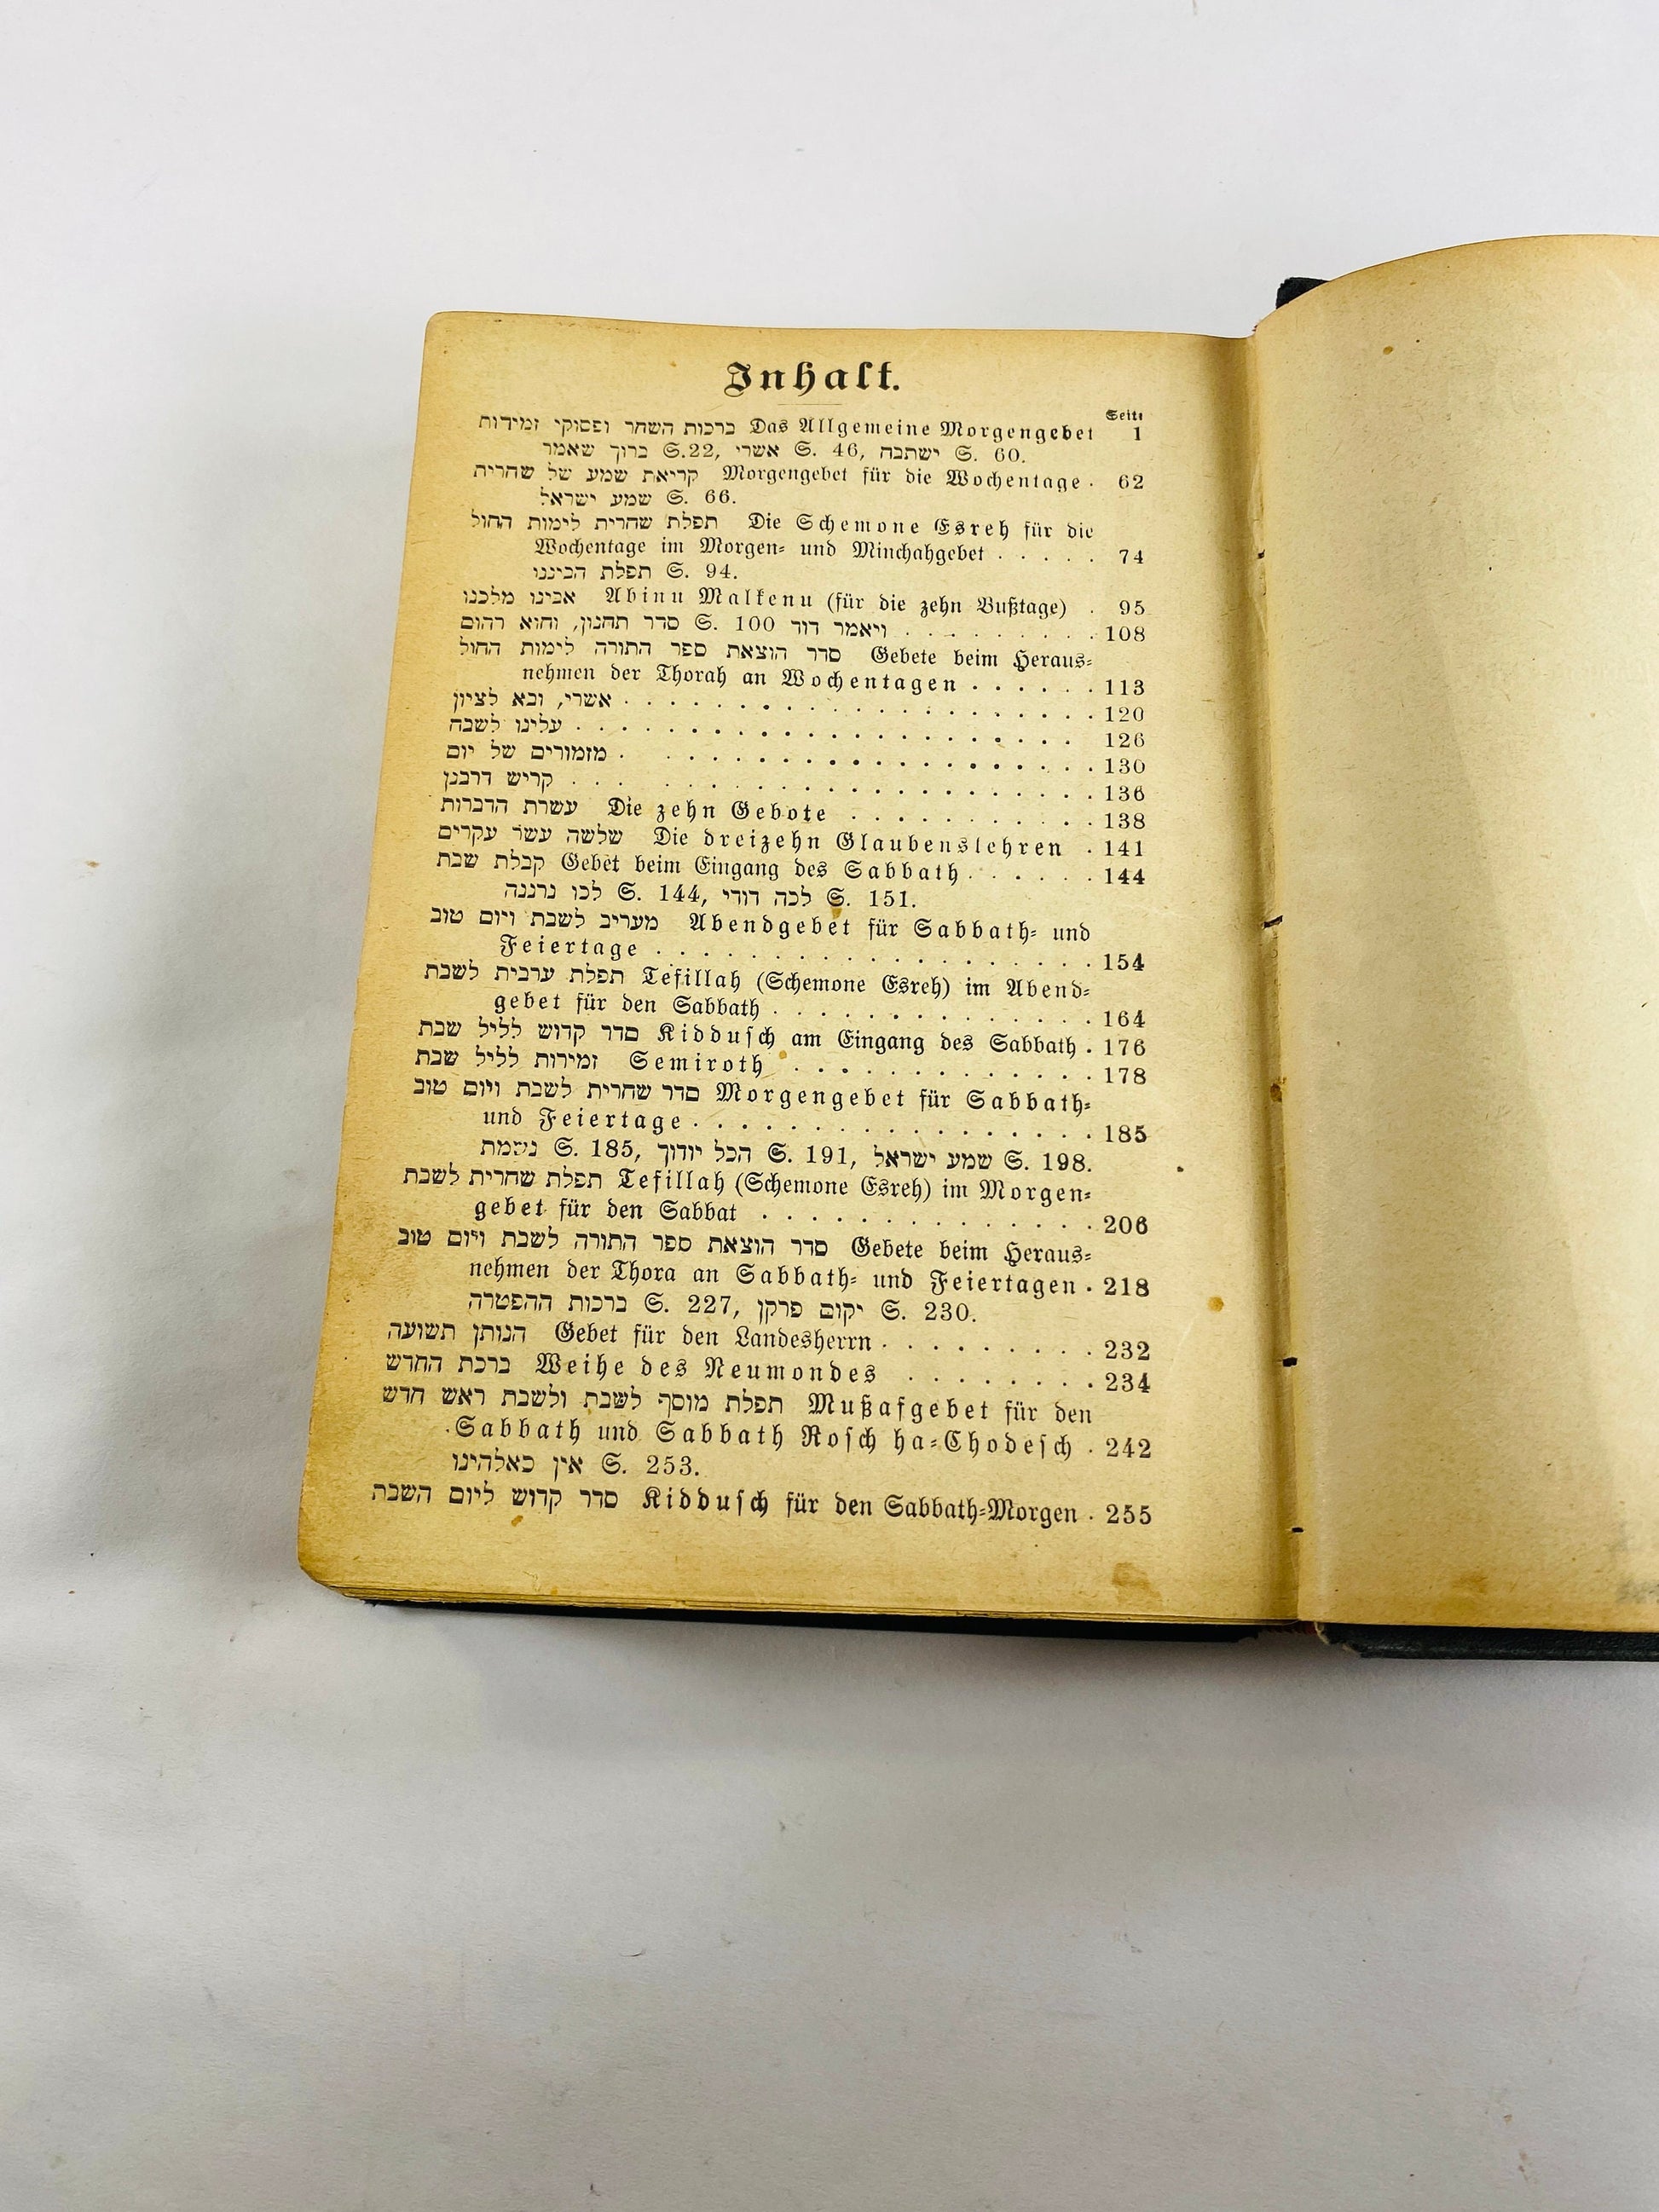 Inhalt.
Seite
ברכות השחר ופסוקי זמירות Das Allgemeine Morgengebet 1
ברוך שאמר S.22, אשרי S. 46, ישתבח S. 60.
קריאת שמע של שחרית Morgengebet für die Wochentage . 62
שמע ישראל S. 66.
תפלת שחרית לימות החול Die Schemone Esreh für die
Wochentage im Morgen= und Minchahgebet . . . . . 74
תפלת הביננו S. 94.
אבינו מלכנו Abinu Malkenu (für die zehn Bußtage) . 95
סדר תחנון, והוא רחום S. 100 ויאמר דוד . . . . . . . . . 108
סדר הוצאת ספר התורה לימות החול Gebete beim Heraus=
nehmen der Thorah an Wochentagen . . . . . . 113
אשרי, ובא לציון . . . . . . . . . . . . . . . . . . 120
עלינו לשבח . . . . . . . . . . . . . . . . . . . 126
מזמורים של יום . . . . . . . . . . . . . . . . . . 130
קדיש דרבנן . . . . . . . . . . . . . . . . . . . 136
עשרת הדברות Die zehn Gebote . . . . . . . . . . 138
שלשה עשר עקרים Die dreizehn Glaubenslehren . 141
קבלת שבת Gebet beim Eingang des Sabbath . . . . . . 144
לכו נרננה S. 144, לכה דודי S. 151.
מעריב לשבת ויום טוב Abendgebet für Sabbath= und
Feiertage . . . . . . . . . . . . . . . . . . 154
תפלת ערבית לשבת Tefillah (Schemone Esreh) im Abend=
gebet für den Sabbath . . . . . . . . . . . . . 164
סדר קדוש לליל שבת Kiddusch am Eingang des Sabbath . 176
זמירות לליל שבת Semiroth . . . . . . . . . . . . . 178
סדר שחרית לשבת ויום טוב Morgengebet für Sabbath=
und Feiertage . . . . . . . . . . . . . . . . . 185
נשמת S. 185, הכל יודוך S. 191, שמע ישראל S. 198.
תפלת שחרית לשבת Tefillah (Schemone Esreh) im Morgen=
gebet für den Sabbat . . . . . . . . . . . . . . 206
סדר הוצאת ספר התורה לשבת ויום טוב Gebete beim Heraus=
nehmen der Thora an Sabbath= und Feiertagen . 218
ברכות ההפטרה S. 227, יקום פרקן S. 230.
הנותן תשועה Gebet für den Landesherrn . . . . . . . . . 232
ברכת החדש Weihe des Neumondes . . . . . . . . 234
תפלת מוסף לשבת ולשבת ראש חדש Mußafgebet für den
Sabbath und Sabbath Rosch ha=Chodesch . 242
אין כאלהינו S. 253.
סדר קדוש ליום השבת Kiddusch für den Sabbath=Morgen . 255